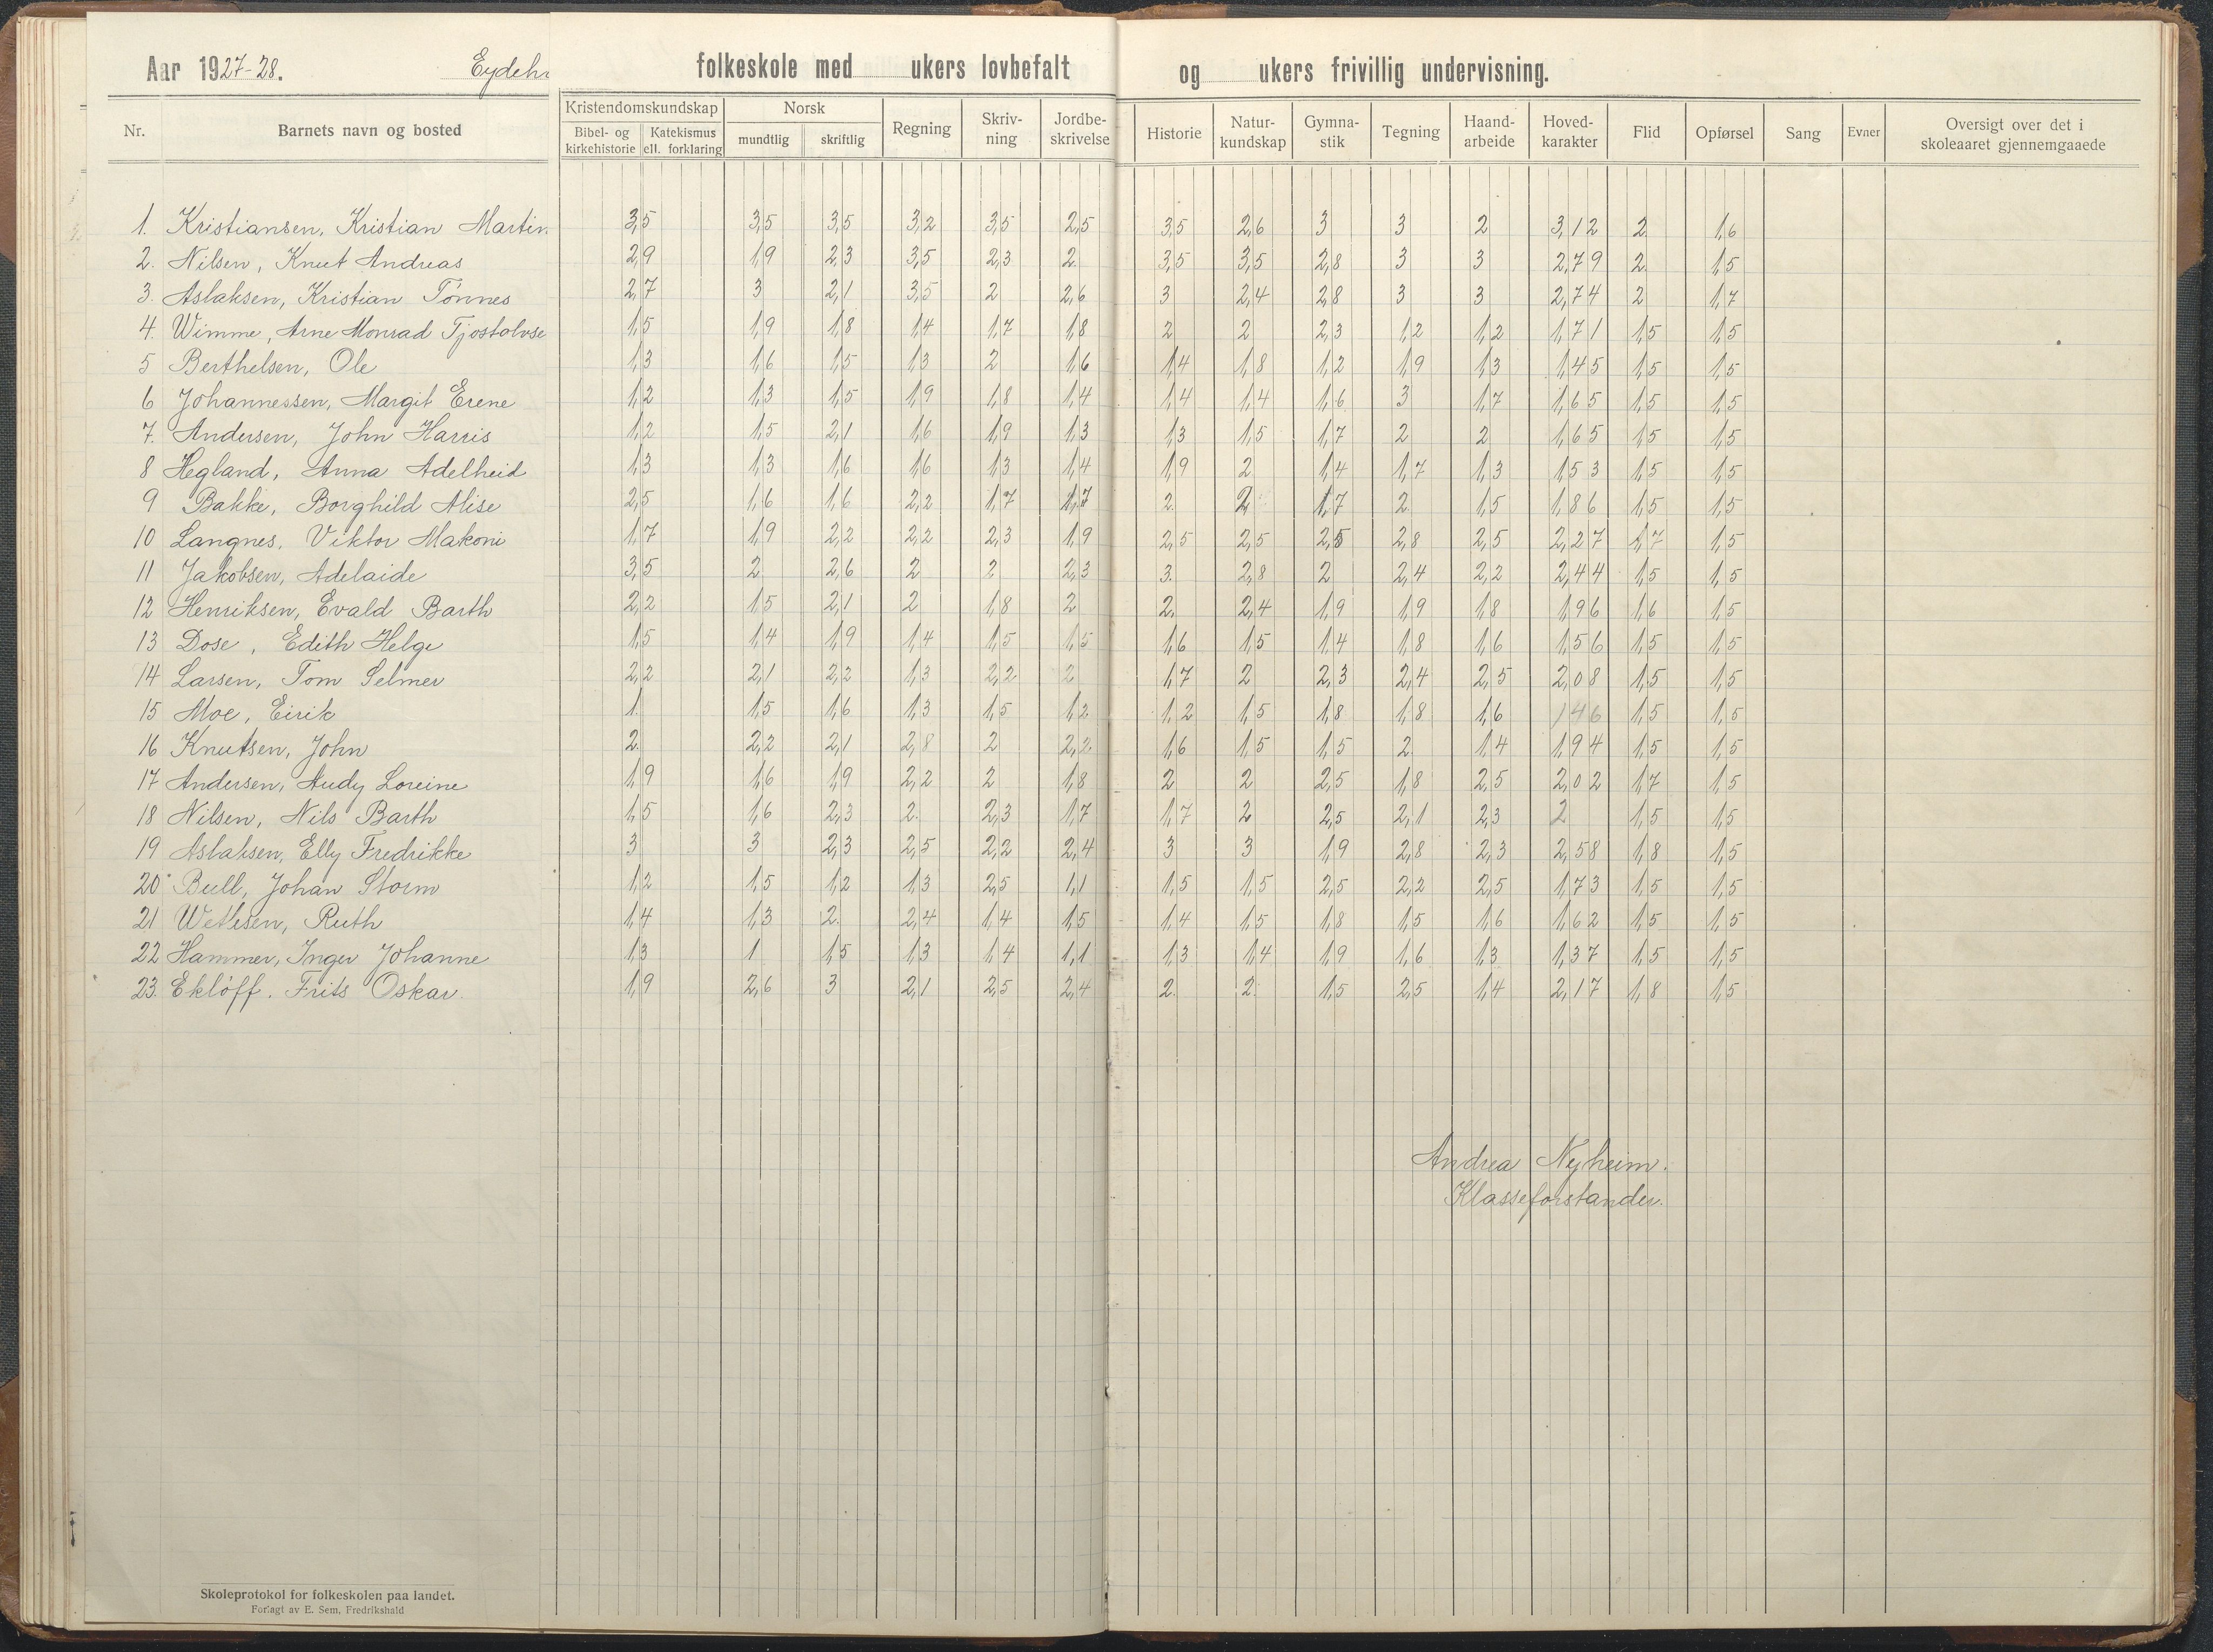 Aar 1927-28. Eydeh folkeskole med ukers lovbefalt og ukers frivillig undervisning.
Nr. Barnets navn og bosted Kristendomskundskap Bibel- og kirkehistorie Katekismus ell. forklaring Norsk mundtlig skriftlig Regning Skriv-ning Jordbe-skrivelse Historie Natur-kundskap Gymna-stik Tegning Haand-arbeide Hoved-karakter Flid Opførsel Sang Evner Oversigt over det i skoleaaret gjennemgaaede
1. Kristiansen, Kristian Martin 3,5 3,5 3,5 3,2 3,5 2,5 3,5 2,6 3 3 2 3,12 2 1,6
2. Nilsen, Knut Andreas 2,9 1,9 2,3 3,5 2,3 2 3,5 3,5 2,8 3 3 2,79 2 1,5
3. Aslaksen, Kristian Tönnes 2,7 3 2,1 3,5 2 2,6 3 2,4 2,8 3 3 2,74 2 1,7
4. Wimme, Arne Monrad Tjostolvse 1,5 1,9 1,8 1,4 1,7 1,8 2 2 2,3 1,2 1,2 1,71 1,5 1,5
5 Berthelsen, Ole 1,3 1,6 1,5 1,3 2 1,6 1,4 1,8 1,2 1,9 1,3 1,45 1,5 1,5
6 Johannessen, Margit Erene 1,2 1,3 1,5 1,9 1,8 1,4 1,4 1,4 1,6 3 1,7 1,65 1,5 1,5
7. Andersen, John Harris 1,2 1,5 2,1 1,6 1,9 1,3 1,3 1,5 1,7 2 2 1,65 1,5 1,5
8 Hegland, Anna Adelheid 1,3 1,3 1,6 1,6 1,3 1,4 1,9 2 1,4 1,7 1,3 1,53 1,5 1,5
9 Bakke, Borghild Alise 2,5 1,6 1,6 2,2 1,7 1,7 2. 2 1,7 2. 1,5 1,86 1,5 1,5
10 Langnes, Viktor Makoni 1,7 1,9 2,2 2,2 2,3 1,9 2,5 2,5 2,5 2,8 2,5 2,27 1,7 1,5
11 Jakobsen, Adelaide 3,5 2 2,6 2 2 2,3 3. 2,8 2 2,4 2,2 2,44 1,5 1,5
12 Henriksen, Evald Barth 2,2 1,5 2,1 2 1,8 2 2. 2,4 1,9 1,9 1,8 1,96 1,6 1,5
13 Dose, Edith Helge 1,5 1,4 1,9 1,4 1,5 1,5 1,6 1,5 1,4 1,8 1,6 1,56 1,5 1,5
14 Larsen, Tom Selmer 2,2 2,1 2,2 1,3 2,2 2 1,7 2 2,3 2,4 2,5 2,08 1,5 1,5
15 Moe, Eirik 1. 1,5 1,6 1,3 1,5 1,2 1,2 1,5 1,8 1,8 1,6 1,46 1,5 1,5
16 Knutsen, John 2. 2,2 2,1 2,8 2 2,2 1,6 1,5 1,5 2. 1,4 1,94 1,5 1,5
17 Andersen, Audy Loreine 1,9 1,6 1,9 2,2 2 1,8 2 2 2,5 1,8 2,5 2,02 1,7 1,5
18 Nilsen, Nils Barth 1,5 1,6 2,3 2. 2,3 1,7 1,7 2 2,5 2,1 2,3 2 1,5 1,5
19 Aslaksen, Elly Fredrikke 3 3 2,3 2,5 2,2 2,4 3 3 1,9 2,8 2,3 2,58 1,8 1,5
20 Bull, Johan Storm 1,2 1,5 1,2 1,3 2,5 1,1 1,5 1,5 2,5 2,2 2,5 1,73 1,5 1,5
21 Wetlesen, Ruth 1,4 1,3 2. 2,4 1,4 1,5 1,4 1,5 1,8 1,5 1,6 1,62 1,5 1,5
22 Hammer, Inger Johanne 1,3 1 1,5 1,3 1,4 1,1 1,3 1,4 1,9 1,6 1,3 1,37 1,5 1,5
23. Eklöff. Frits Oskar. 1,9 2,6 3 2,1 2,5 2,4 2. 2. 1,5 2,5 1,4 2,17 1,8 1,5
Andrea Nyheim.
Klasseforstander.
Skoleprotokol for folkeskolen paa landet.
Forlagt av E. Sem, Fredrikshald